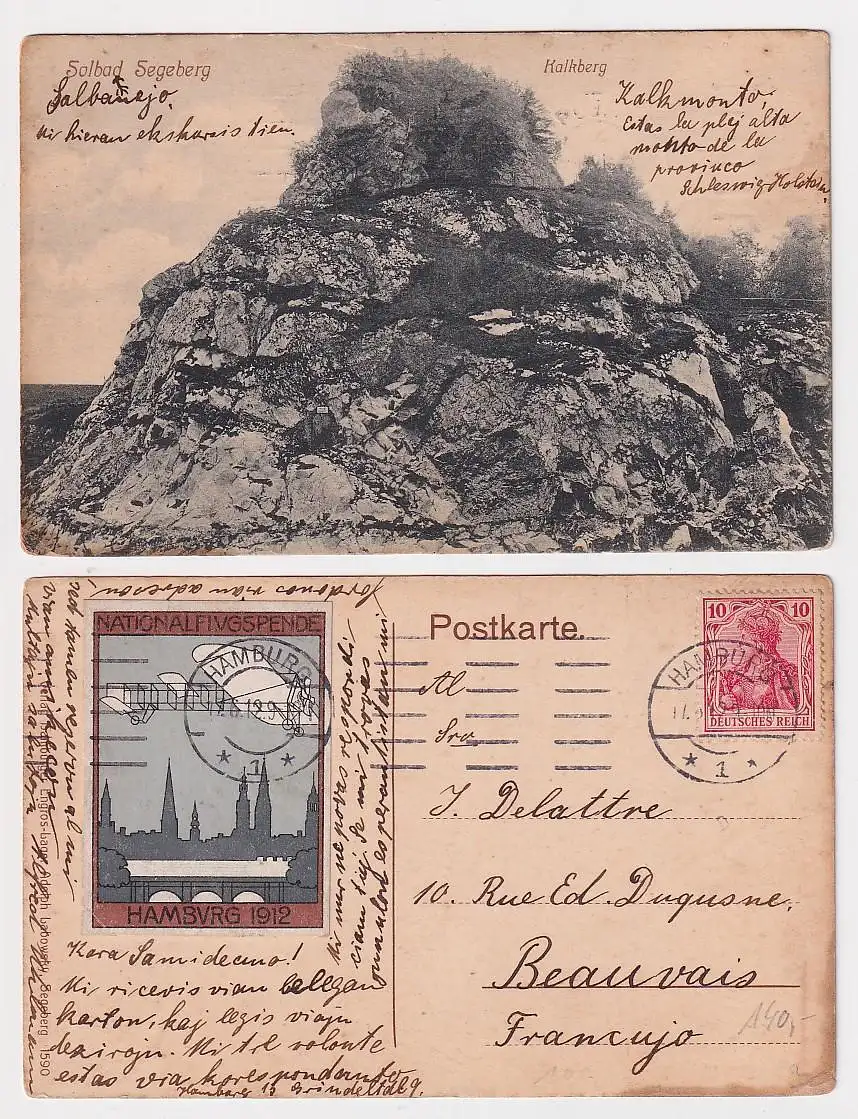 Solbad Segeberg
Kalkberg
Salbanejo.
Mi hierau ekskursis tien.
Kalkmonto,
Estas la plej alta
monto de la
provinco
Schleswig-Holstein.
NATIONALFLVGSPENDE
HAMBVRG 1912
HAMBURG
17.6.12.9
* 1 *
Postkarte.
10 10
DEUTSCHES REICH
HAMBURG
17.
* 1 *
Al
Sro
J. Delattre
10. Rue Ed. Duqusne.
Beauvais
Francujo
140,-
Kara Samideano!
Mi ricevis vian belegan
karton, kaj legis viajn
dezirojn. Mi tre volonte
estas via korespondanto
Hamburg 13 Grindelallee 9.
Mi nur ne povas respondi
ciam tuj. Se mi trovas
mi
vian adreson
Segeberg 1590